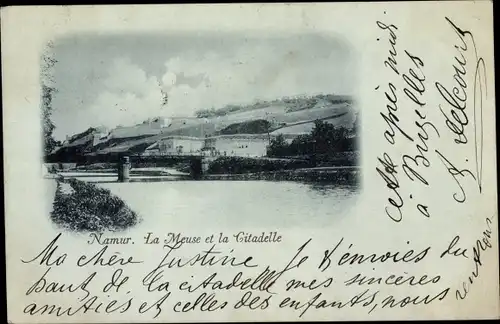 Namur. La Meuse et la Citadelle
Ma chère Justine Je t'envoies du
haut de la citadelle mes sincères
amitiés et celles des enfants, nous
rentrons
cet après midi
à Bruxelles
A. Delcourt